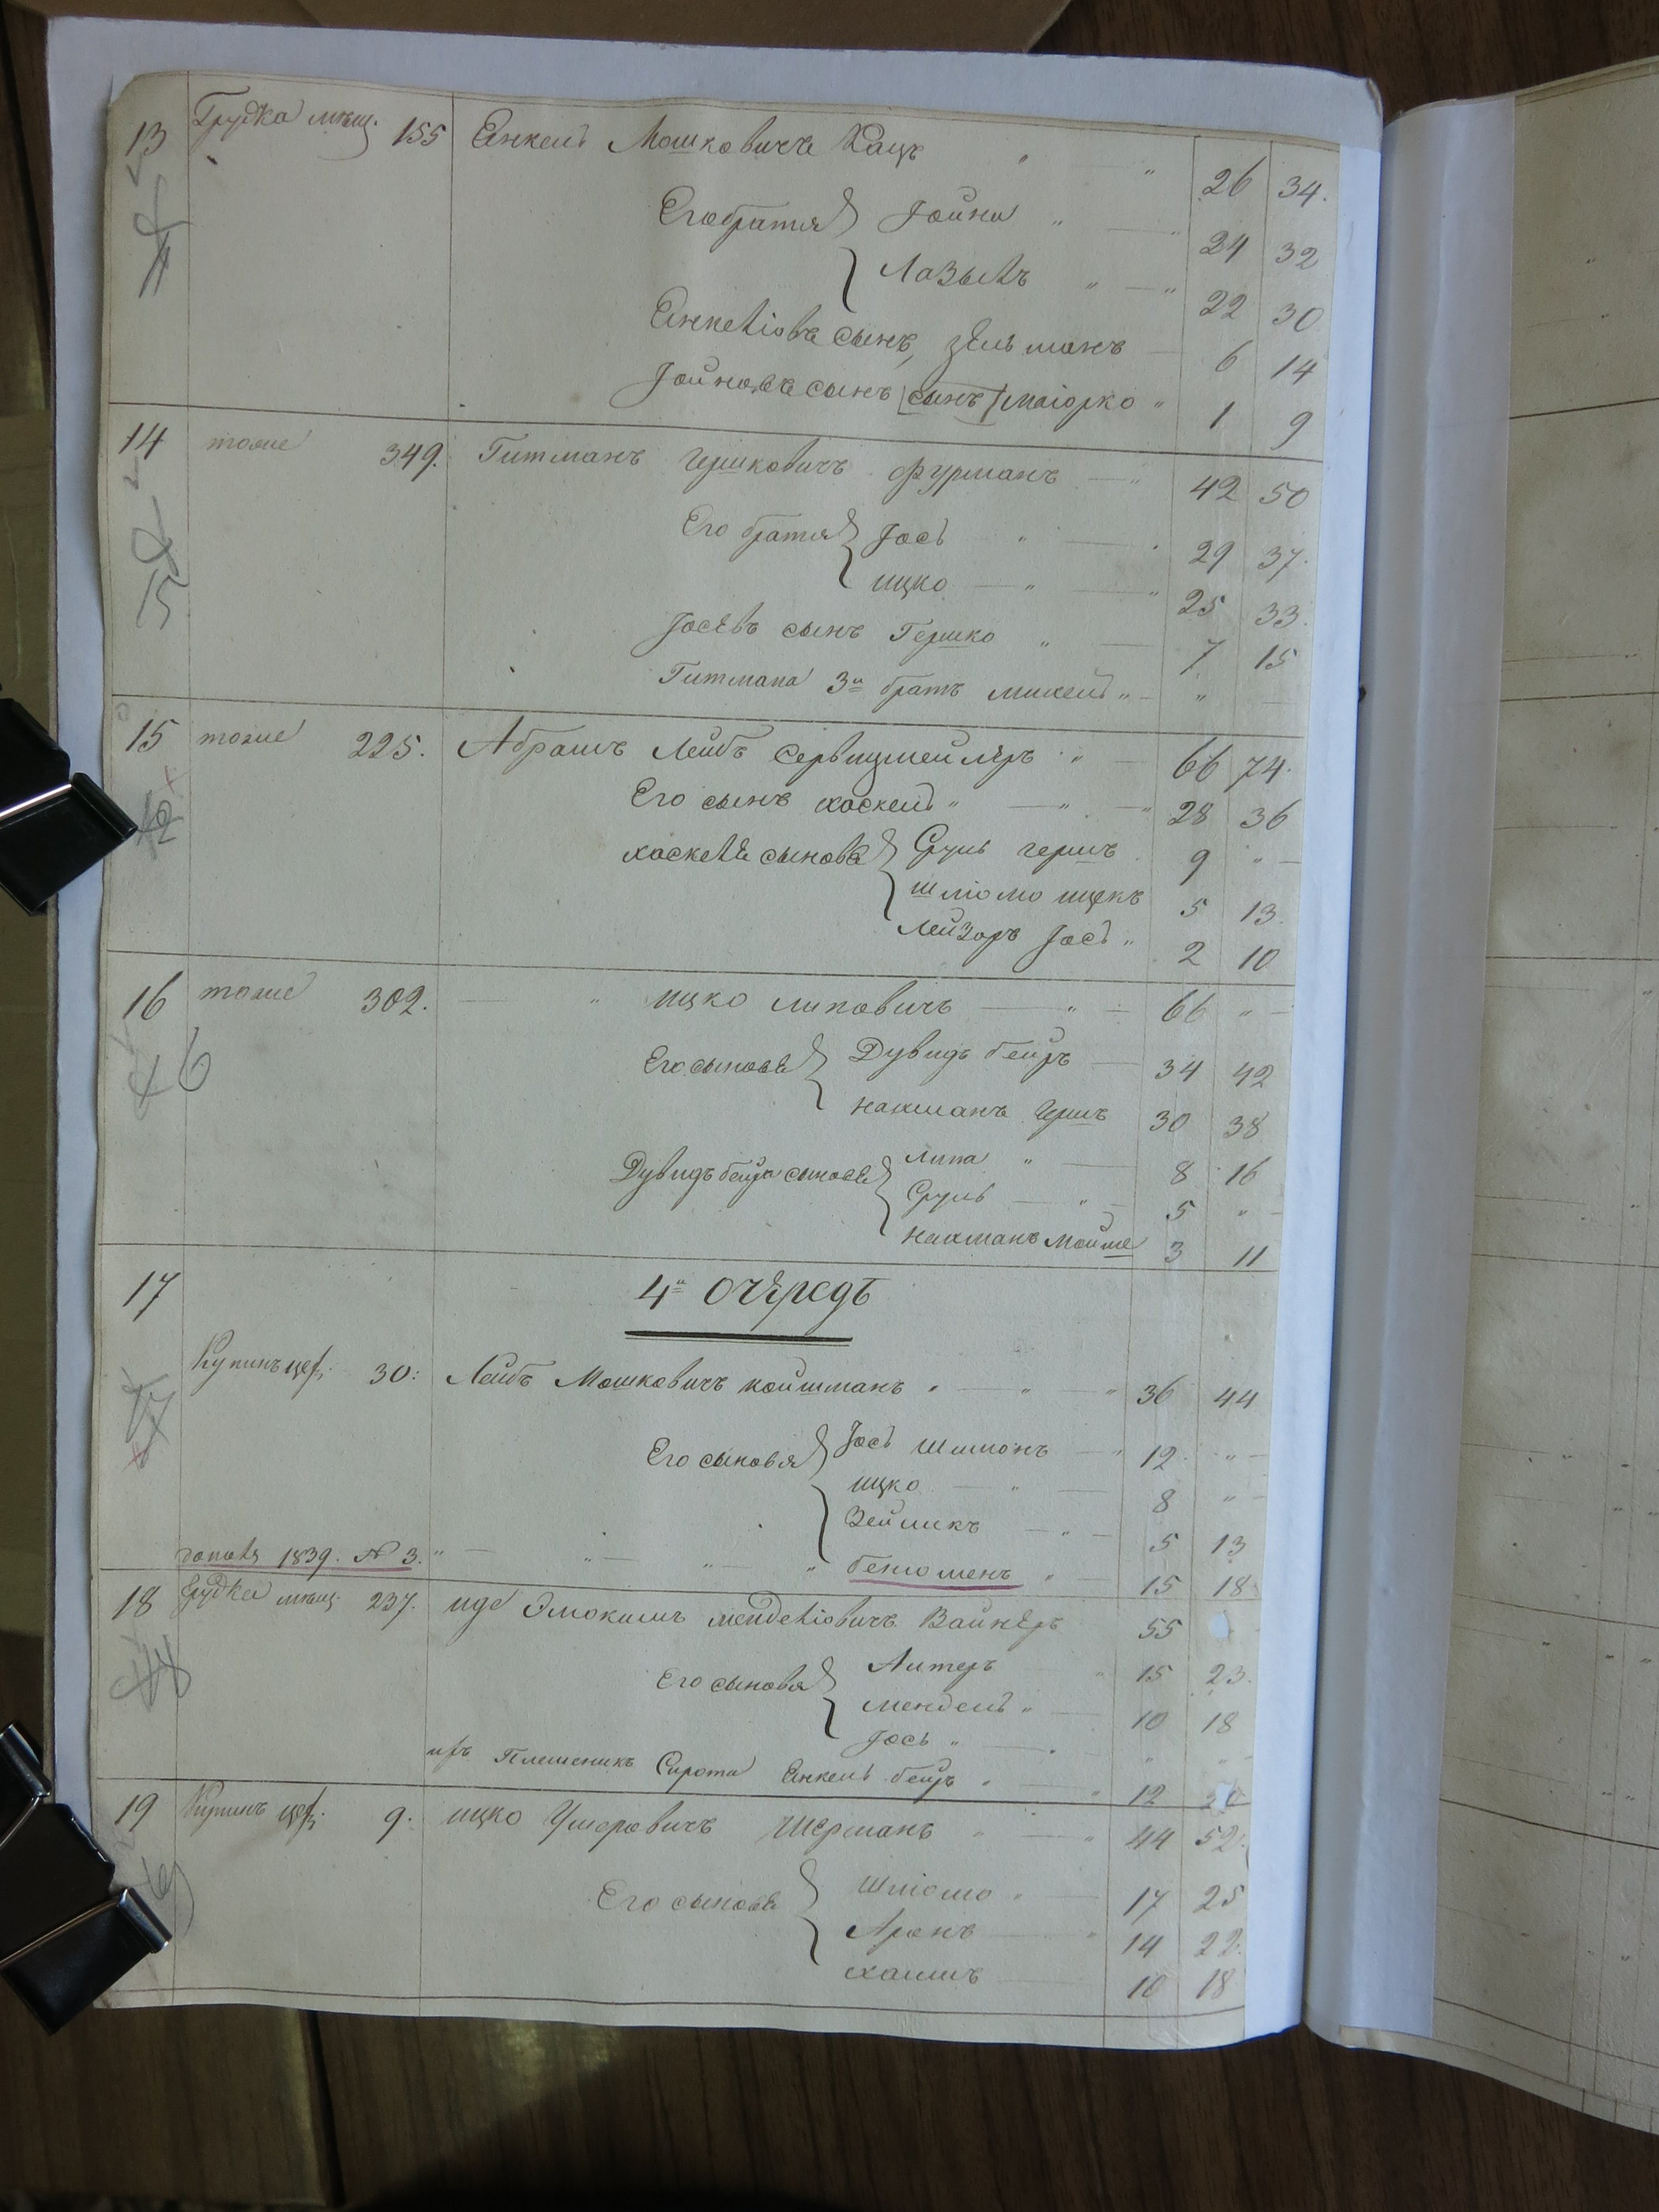 13 Грудка мѣщ. 155 Янкель Мошковичъ Кацъ " " 26 34.
Его братья Іойна " " 24 32
Лазыль " " 22 30
Янкеліовъ сынъ, Зельманъ 6 14
Іойновъ сынъ [сынъ] Маіорко " 1 9
14 тоже 349. Гитманъ Гершковичъ Фурманъ " 42 50
Его братья Іось " 29 37.
ицко " " 25 33.
Іосевъ сынъ Гершко " 7 15
Гитмана 3й братъ михель " "
15 тоже 225. Абрамъ Лейбъ Сервицмейляръ " 66 74.
Его сынъ хаскель " " " 28 36
хаскеля сыновя Сруль гершъ 9 "
шліомо ицекъ 5 13.
Лейзоръ Іось " 2 10
16 тоже 302. " ицко липовичъ " 66 "
Его сыновя Дувидъ беиръ 34 42
нахманъ Гершъ 30 38
Дувидъ беира сыновя липа " 8 16
Сруль " 5 "
нахманъ Мойше 3 11
17 4я очередъ
Купинъ 30: Лейбъ Мошковичъ койшманъ " " " 36 44
Его сыновя Іось Шимонъ " 12 "
ицко " 8 "
Зейликъ " 5 13
1839. № 3. " " " " беніоменъ " 15 18
18 Грудка мѣщ. 237. Менделіовичъ Вайнеръ 55
Его сыновя Алтеръ " 15 23.
мендель " 10 18
Іось " " "
Племеникъ Сирота Янкель беиръ " " 12 20
19 Купинъ 9. ицко Ушеровичъ Шерманъ " " 44 52.
Его сыновя Шліомо " 17 25
Аронъ " 14 22.
хаимъ 10 18